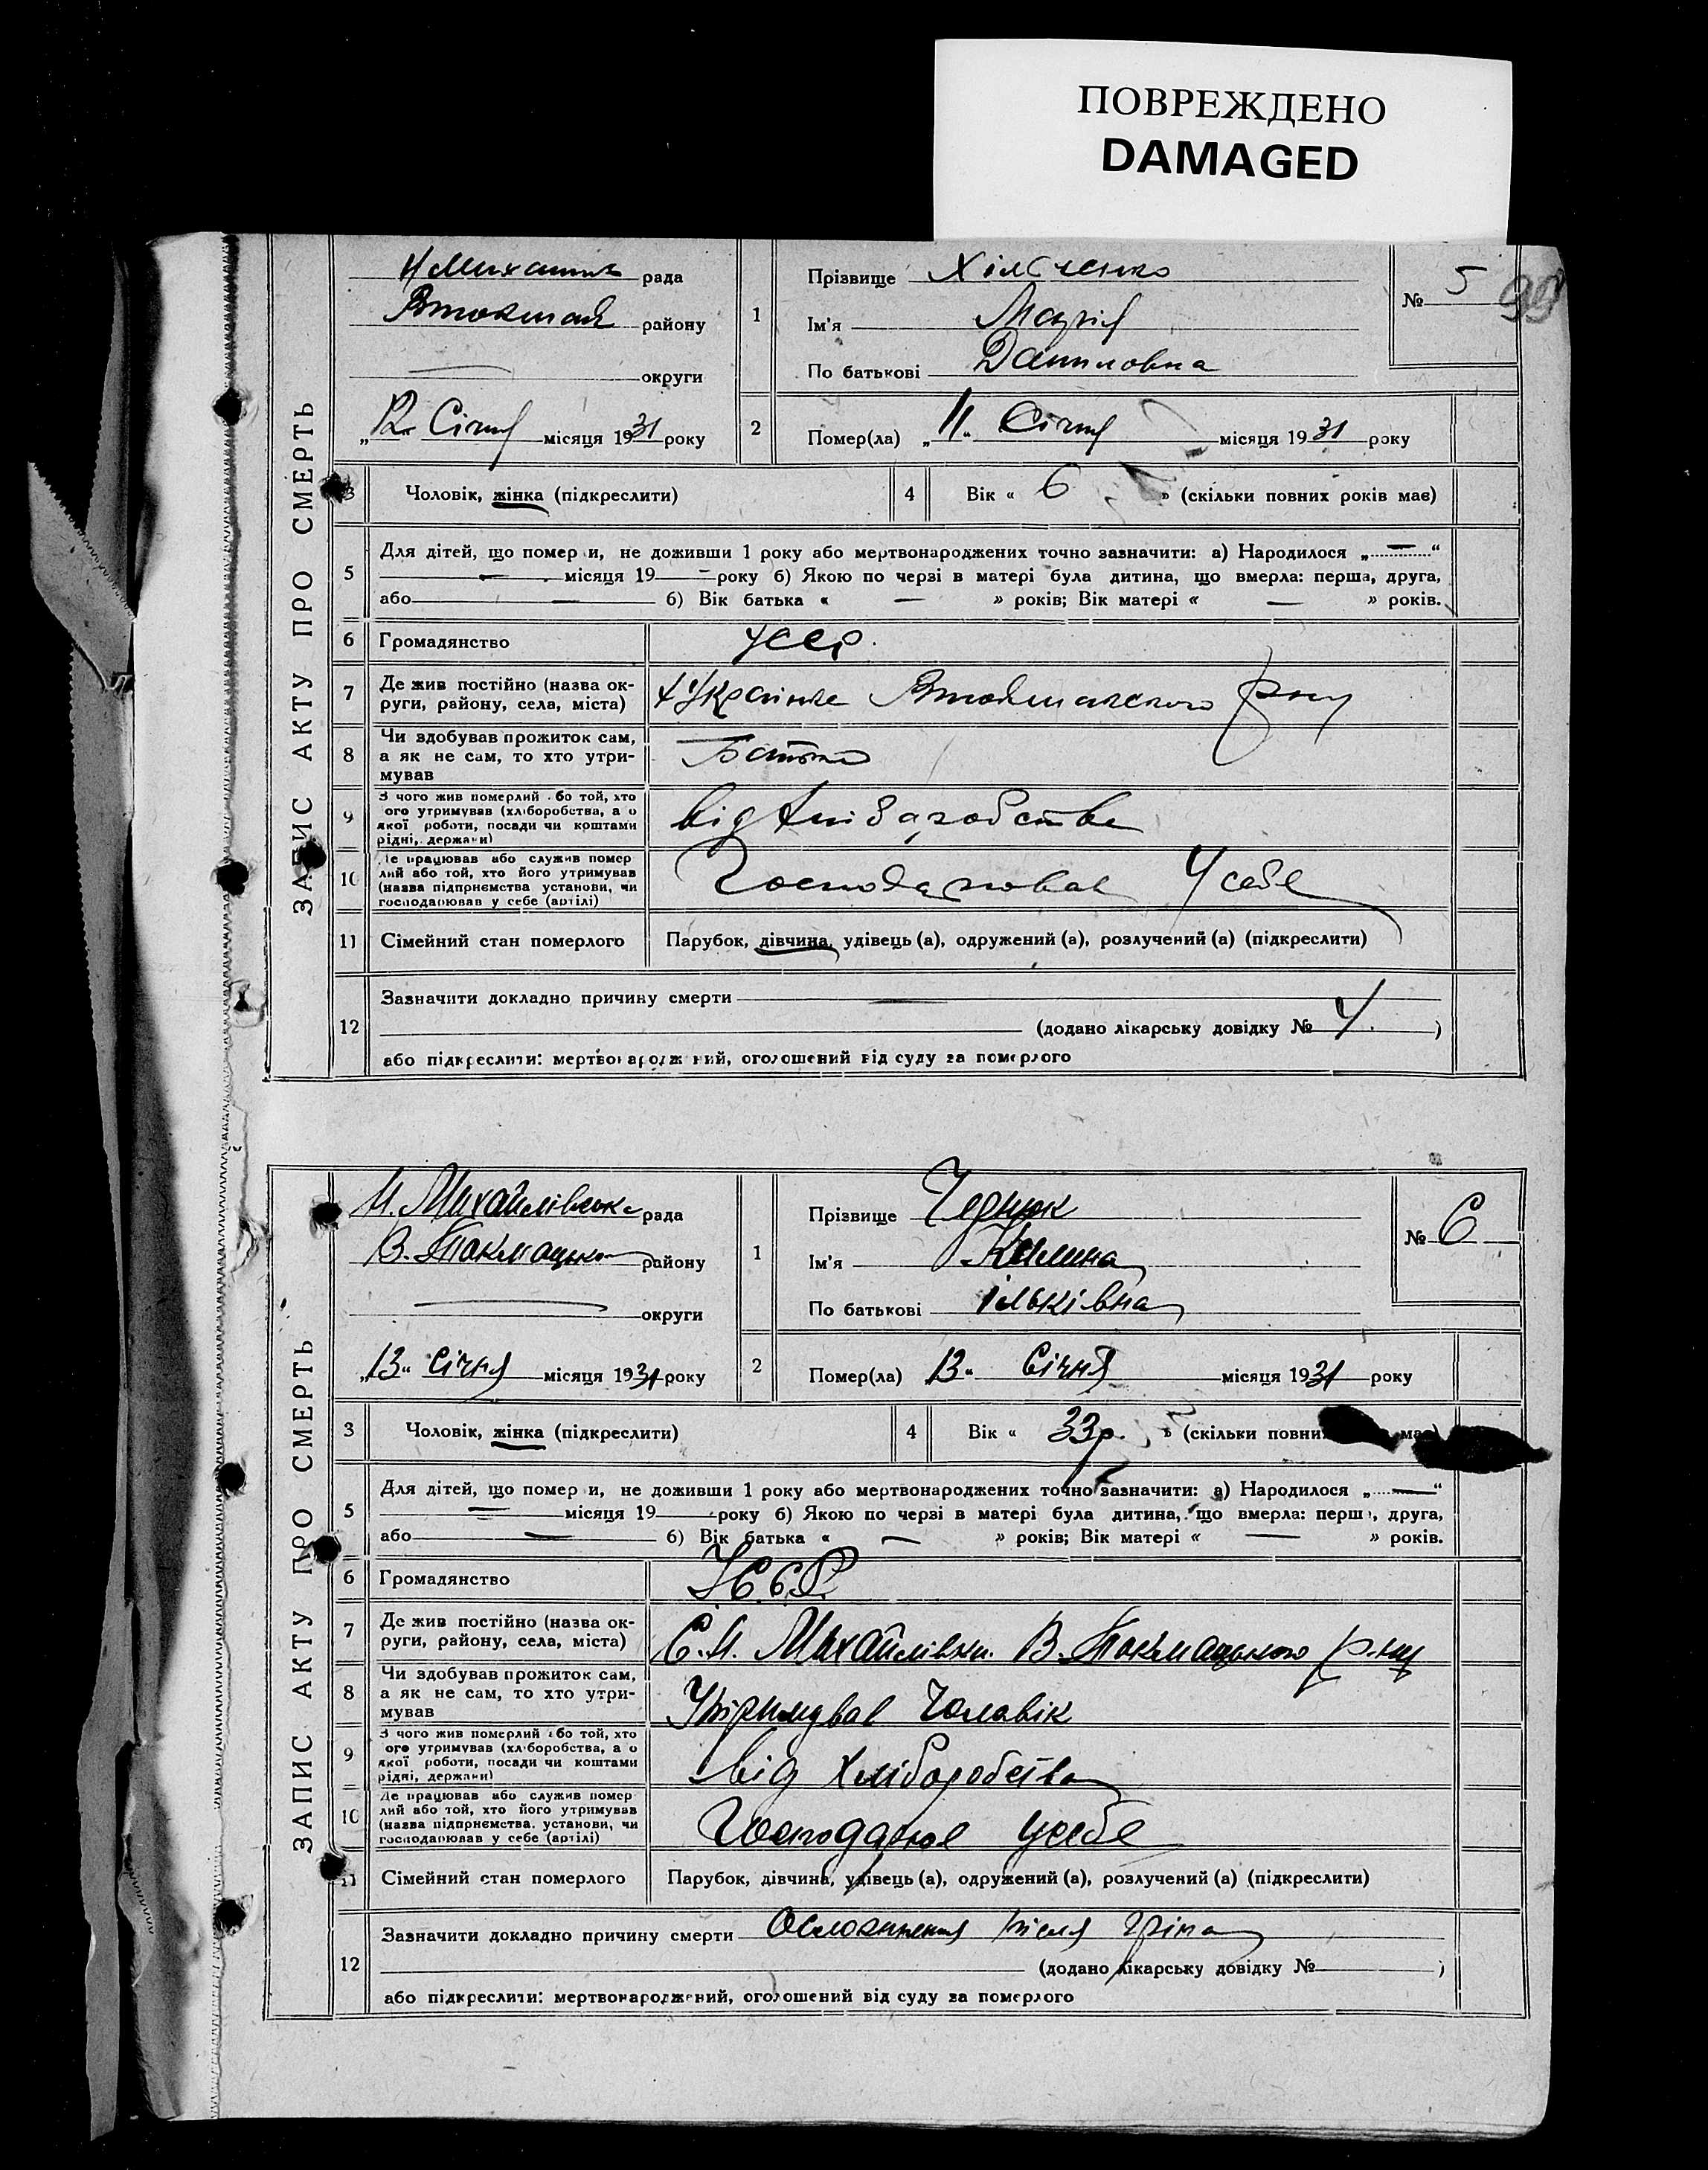 ПОВРЕЖДЕНО
DAMAGED
ЗАПИС АКТУ ПРО СМЕРТЬ
рада
району
округи
„12“ Січня місяця 1931 року
1
Прізвище
Ім'я Марія
По батькові Даниловна
№ 5
99
2
Помер(ла) „11“ Січня місяця 1931 року
3
Чоловік, жінка (підкреслити)
4
Вік « 6 » (скільки повних років має)
5
Для дітей, що помер и, не доживши 1 року або мертвонароджених точно зазначити: а) Народилося „ — “
— місяця 19 — року б) Якою по черзі в матері була дитина, що вмерла: перша, друга,
або — б) Вік батька « — » років; Вік матері « — » років.
6
Громадянство
УССР.
7
Де жив постійно (назва ок-
руги, району, села, міста)
8
Чи здобував прожиток сам,
а як не сам, то хто утри-
мував
Батько
9
З чого жив померлий або той, хто
ого утримував (хліборобства, а о
якої роботи, посади чи коштами
рідні, держави)
від хліборобства
10
Де працював або служив помер
лий або той, хто його утримував
(назва підприємства установи, чи
господарював у себе (артілі)
Господарював У себе
11
Сімейний стан померлого
Парубок, дівчина, удівець (а), одружений (а), розлучений (а) (підкреслити)
12
Зазначити докладно причину смерти —
(додано лікарську довідку № 4. )
або підкреслити: мертвонароджений, оголошений від суду за померлого
ЗАПИС АКТУ ПРО СМЕРТЬ
Н. Михайлівська рада
В. Токмацького району
округи
„13“ Січня місяця 1931 року
1
Прізвище
Ім'я Калина
По батькові Ільківна
№ 6
2
Помер(ла) 13“ Січня місяця 1931 року
3
Чоловік, жінка (підкреслити)
4
Вік « 33р. » (скільки повни має)
5
Для дітей, що помер и, не доживши 1 року або мертвонароджених точно зазначити: а) Народилося „ — “
— місяця 19 — року б) Якою по черзі в матері була дитина, що вмерла: перша, друга,
або — б) Вік батька « — » років; Вік матері « — » років.
6
Громадянство
У.С.С.Р.
7
Де жив постійно (назва ок-
руги, району, села, міста)
С. Н. Михайлівки. В. Токмацького р-ну
8
Чи здобував прожиток сам,
а як не сам, то хто утри-
мував
Утримував Чоловік
9
З чого жив померлий або той, хто
ого утримував (хліборобства, а о
якої роботи, посади чи коштами
рідні, держави)
від хліборобства
10
Де працював або служив помер
лий або той, хто його утримував
(назва підприємства. установи, чи
господарював у себе (артілі)
Господарює усебе
11
Сімейний стан померлого
Парубок, дівчина, удівець (а), одружений (а), розлучений (а) (підкреслити)
12
Зазначити докладно причину смерти Осложнення після гріпа
(додано лікарську довідку № )
або підкреслити: мертвонароджений, оголошений від суду за померлого